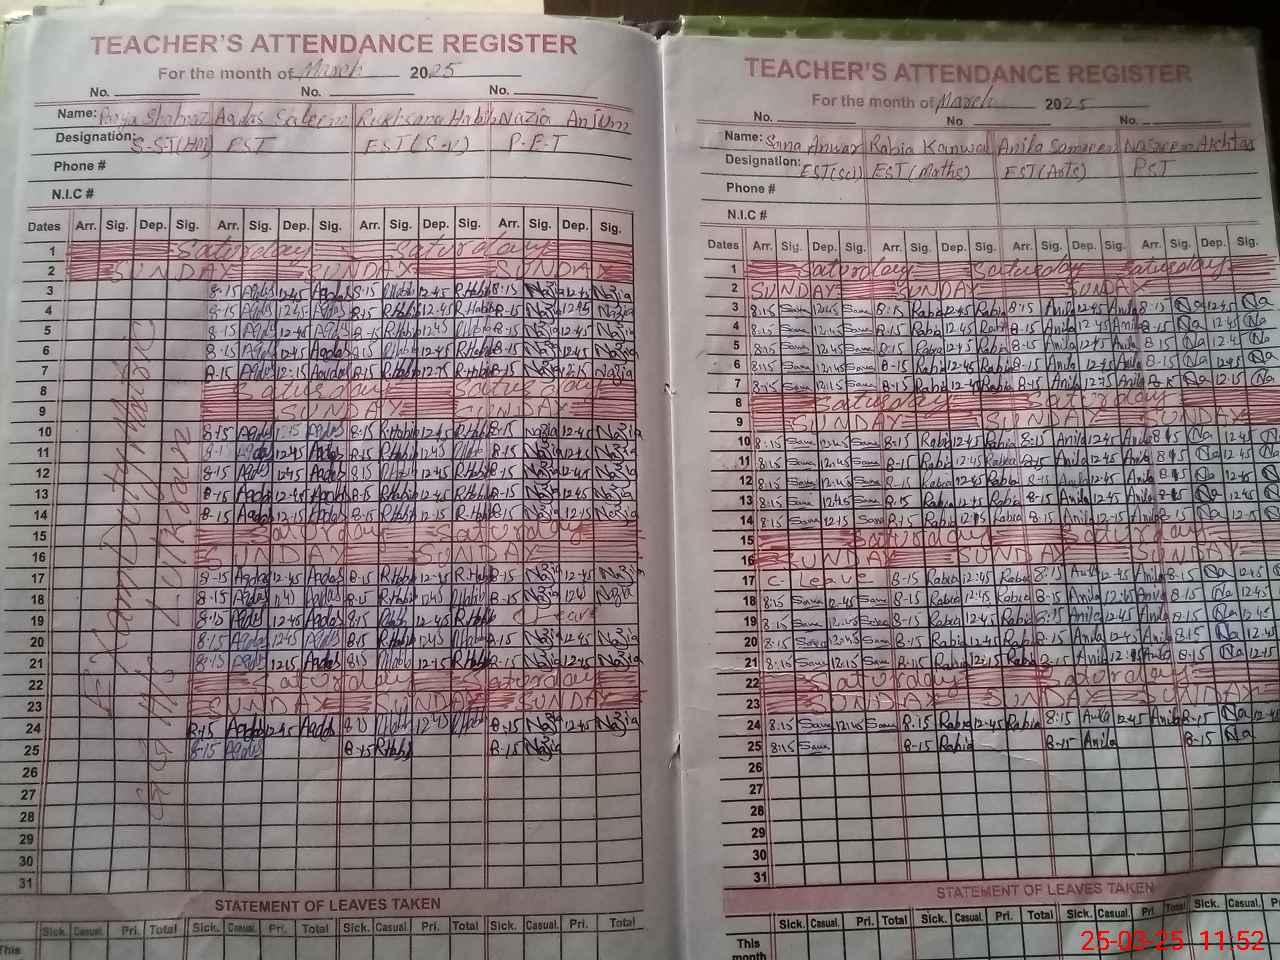 TEACHER'S ATTENDANCE REGISTER
For the month of March 2025
No. No. No.
Name: Shahnaz Aqdas Saleem Rukhsana Habib Nazia Anjum
Designation: S.S.T(HM) EST EST(S.V) P.E.T
Phone #
N.I.C #
Dates Arr. Sig. Dep. Sig. Arr. Sig. Dep. Sig. Arr. Sig. Dep. Sig. Arr. Sig. Dep. Sig.
1 Saturday Saturday
2 SUNDAY SUNDAY SUNDAY
3 8-15 Aqdas 12-45 Aqdas 8-15 R.Habib 12-45 R.Habib 8-15 Nazia 12-45 Nazia
4 8-15 Aqdas 12-45 Aqdas 8-15 R.Habib 12-45 R.Habib 8-15 Nazia 12-45 Nazia
5 8-15 Aqdas 12-45 Aqdas 8-15 R.Habib 12-45 8-15 Nazia 12-45 Nazia
6 8-15 Aqdas 12-45 Aqdas 8-15 12-45 R.Habib 8-15 Nazia 12-45 Nazia
7 8-15 Aqdas 12-15 Aqdas 8-15 R.Habib R.Habib 8-15 Nazia 12-15 Nazia
8 Saturday Saturday
9 SUNDAY SUNDAY
10 8-15 Aqdas Aqdas 8-15 R.Habib 12-45 R.Habib 8-15 Nazia 12-45 Nazia
11 Aqdas 12-45 Aqdas 8-15 R.Habib 12-45 8-15 Nazia 12-45 Nazia
12 8-15 Aqdas 12-45 Aqdas 8-15 12-45 R.Habib 8-15 Nazia 12-45 Nazia
13 8-15 Aqdas 12-45 Aqdas 8-15 R.Habib 12-45 R.Habib 8-15 Nazia 12-45 Nazia
14 8-15 Aqdas 12-15 Aqdas 8-15 R.Habib 12-15 R.Habib 8-15 Nazia 12-15 Nazia
15 Saturday Saturday
16 SUNDAY SUNDAY
17 8-15 Aqdas 12-45 Aqdas 8-15 R.Habib 12-45 R.Habib 8-15 Nazia 12-45 Nazia
18 8-15 Aqdas Aqdas 8-15 R.Habib 12-45 8-15 Nazia Nazia
19 8-15 Aqdas 12-45 Aqdas 8-15 R.Habib 12-45 R.Habib C-Leave
20 8-15 Aqdas 12-45 Aqdas 8-15 R.Habib 12-45 8-15 Nazia 12-45 Nazia
21 8-15 Aqdas 12-15 Aqdas 8-15 12-15 R.Habib 8-15 Nazia 12-15 Nazia
22 Saturday Saturday
23 SUNDAY SUNDAY SUNDAY
24 8-15 Aqdas 12-45 Aqdas 12-45 8-15 Nazia 12-45 Nazia
25 8-15 Aqdas 8-15 R.Habib 8-15 Nazia
26
27
28
29
30
31
Exam Duty Matric
STATEMENT OF LEAVES TAKEN
Sick. Casual. Pri. Total Sick. Casual. Pri. Total Sick. Casual. Pri. Total Sick. Casual. Pri. Total
This
TEACHER'S ATTENDANCE REGISTER
For the month of March 2025
No. No. No.
Name: Sana Anwar Rabia Kanwal Anila Samreen Nasreen Akhtar
Designation: EST(Sci) EST(Maths) EST(Arts) PST
Phone #
N.I.C #
Dates Arr. Sig. Dep. Sig. Arr. Sig. Dep. Sig. Arr. Sig. Dep. Sig. Arr. Sig. Dep. Sig.
1 Saturday Saturday Saturday
2 SUNDAY SUNDAY SUNDAY
3 8:15 Sana 12:45 Sana 8:15 Rabia 12-45 Rabia 8:15 Anila 12-45 Anila 8-15 Na 12-45 Na
4 8:15 Sana 12:45 Sana 8-15 Rabia 12-45 Rabia 8-15 Anila 12-45 Anila 8-15 Na 12-45 Na
5 8:15 Sana 12:45 Sana 8-15 Rabia 12-45 Rabia 8-15 Anila 12-45 Anila 8-15 Na 12-45 Na
6 8:15 Sana 12:45 Sana 8-15 Rabia 12-45 Rabia 8-15 Anila 12-45 Anila 8-15 Na 12-45 Na
7 8:15 Sana 12:15 Sana 8-15 Rabia 12-45 Rabia 8-15 Anila 12-15 Anila 8-15 Na 12-15 Na
8 Saturday Saturday
9 SUNDAY SUNDAY SUNDAY
10 8:15 Sana 12:45 Sana 8:15 Rabia 12-45 Rabia 8:15 Anila 12-45 Anila 8-15 Na 12-45 Na
11 8:15 Sana 12:45 Sana 8-15 Rabia 12:45 Rabia 8-15 Anila 12-45 Anila 8-15 Na 12-45 Na
12 8:15 Sana 12:45 Sana 8-15 Rabia 12-45 Rabia 8-15 Anila 12-45 Anila 8-15 Na 12-45 Na
13 8:15 Sana 12:45 Sana 8-15 Rabia 12-45 Rabia 8-15 Anila 12-45 Anila 8-15 Na 12-45 Na
14 8:15 Sana 12:15 Sana 8-15 Rabia 12-15 Rabia 8-15 Anila 12-15 Anila 8-15 Na 12-15 Na
15 Saturday Saturday Saturday
16 SUNDAY SUNDAY SUNDAY
17 C-Leave 8-15 Rabia 12:45 Rabia 8:15 Anila 12-45 Anila 8-15 Na 12-45
18 8:15 Sana 12-45 Sana 8-15 Rabia 12-45 Rabia 8-15 Anila 12-45 Anila 8-15 Na 12-45
19 8:15 Sana 12:45 Sana 8-15 Rabia 12-45 Rabia 8-15 Anila 12-45 Anila 8-15 Na 12-45
20 8:15 Sana 12:45 Sana 8-15 Rabia 12-45 Rabia 8-15 Anila 12-45 Anila 8-15 Na 12-45
21 8:15 Sana 12:15 Sana 8-15 Rabia 12:15 Rabia 8-15 Anila 12:15 Anila 8-15 Na 12-15
22 Saturday Saturday
23 SUNDAY SUNDAY SUNDAY
24 8:15 Sana 12:45 Sana 8:15 Rabia 12-45 Rabia 8:15 Anila 12-45 Anila 8-15 Na 12-45
25 8:15 Sana 8-15 Rabia 8-15 Anila 8-15 Na
26
27
28
29
30
31
STATEMENT OF LEAVES TAKEN
Sick. Casual. Pri. Total Sick. Casual. Pri. Total Sick. Casual. Pri. Total Sick. Casual.
This
month
25-03-25 11:52